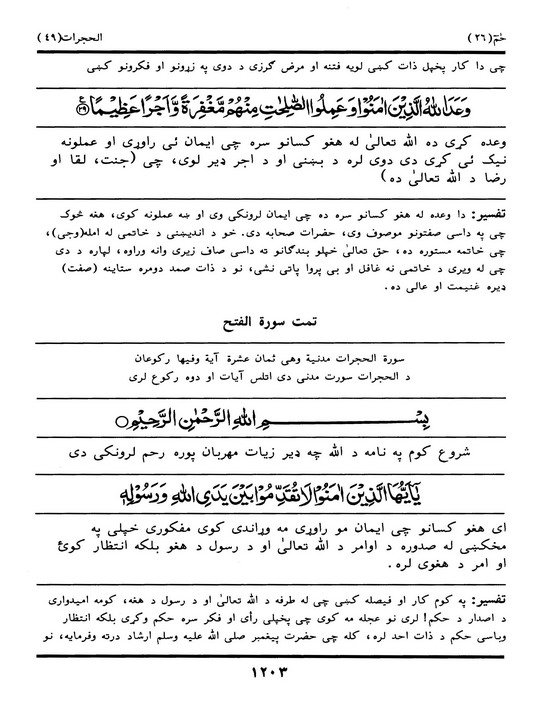 حٰمٓ (٢٦) الحجرات (٤٩)
چی دا کار پخپل ذات کښی لویه فتنه او مرض گرزی د دوی په زړونو او فکرونو کښی
وَعَدَ اللّٰهُ الَّذِيْنَ اٰمَنُوْا وَعَمِلُوا الصّٰلِحٰتِ مِنْهُمْ مَّغْفِرَةً وَّاَجْرًا عَظِيْمًا ﴿٢٩﴾
وعده کړی ده الله تعالیٰ له هغو کسانو سره چی ایمان ئی راوړی او عملونه
نیک ئی کړی دی دوی لره د بښنی او د اجر ډیر لوی، چی (جنت، لقا او
رضا د الله تعالیٰ ده)
تفسیر: دا وعده له هغو کسانو سره ده چی ایمان لرونکی وی او ښه عملونه کوی، هغه څوک
چی په داسی صفتونو موصوف وی، حضرات صحابه دی. خو د اندیښنی د خاتمی له امله (وجی)،
چی خاتمه مستوره ده، حق تعالیٰ خپلو بندگانو ته داسی صاف زیری وانه وراوه، لهاره د دی
چی له ویری د خاتمی نه غافل او بی پروا پاتی نشی، نو د ذات صمد دومره ستاینه (صفت)
ډیره غنیمت او عالی ده.
تمت سورة الفتح
سورة الحجرات مدنية وهى ثمان عشرة آية وفيها ركوعان
د الحجرات سورت مدنی دی اتلس آیات او دوه رکوع لری
بِسْمِ اللّٰهِ الرَّحْمٰنِ الرَّحِيْمِ ○
شروع کوم په نامه د الله چه ډیر زیات مهربان پوره رحم لرونکی دی
يٰٓاَيُّهَا الَّذِيْنَ اٰمَنُوْا لَا تُقَدِّمُوْا بَيْنَ يَدَىِ اللّٰهِ وَرَسُوْلِهٖ
ای هغو کسانو چی ایمان مو راوړی مه وړاندی کوی مفکوری خپلی په
مخکښی له صدوره د اوامر د الله تعالیٰ او د رسول د هغو بلکه انتظار کوئ
او امر د هغوی لره.
تفسیر: په کوم کار او فیصله کښی چی له طرفه د الله تعالیٰ او د رسول د هغه، کومه امیدواری
د اصدار د حکم! لری نو عجله مه کوی چی پخپلی رأی او فکر سره حکم وکړی بلکه انتظار
وباسی حکم د ذات احد لره، کله چی حضرت پیغمبر صلی الله علیه وسلم ارشاد درته وفرمایه، نو
١٢٠٣